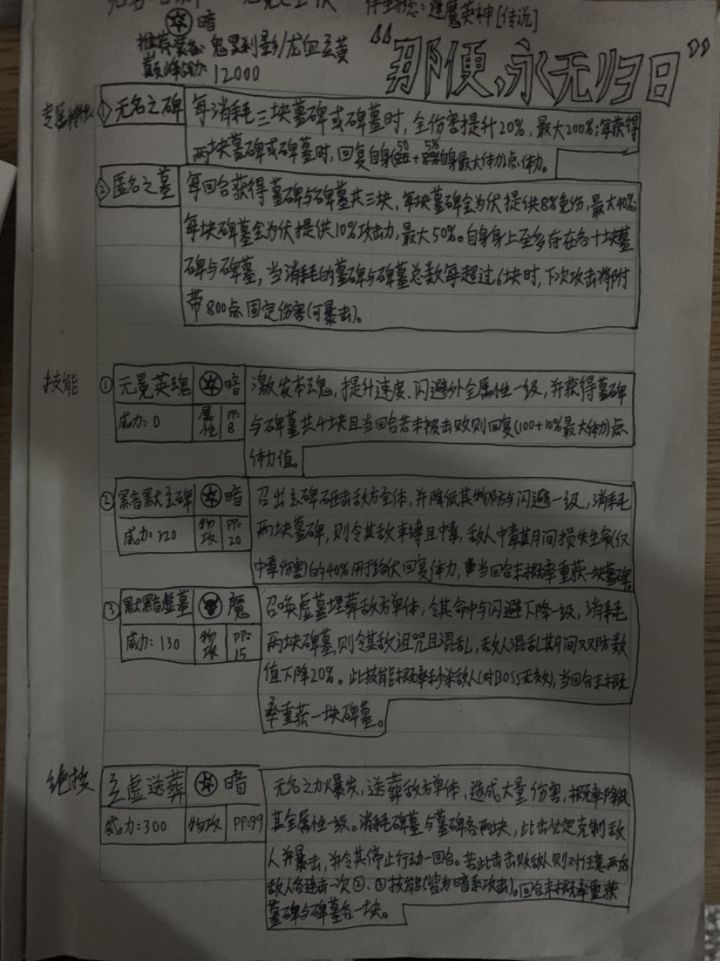 伴生状态：逢魔英神[传说]
暗
推荐装备：鬼灵刹影/龙血玄黄
巅峰战力：12000
“那便，永无归日”
专属特性
①无名之碑
每消耗三块墓碑或碑墓时，全伤害提升20%，最大200%；每获得
两块墓碑或碑墓时，回复自身(50+5%自身最大体力)点体力。
②匿名之墓
每回合获得墓碑与碑墓共三块，每块墓碑会为伏提供8%免伤，最大40%；
每块碑墓会为伏提供10%攻击力，最大50%。自身身上至多存在各十块墓
碑与碑墓，当消耗的墓碑与碑墓总数每超过6块时，下次攻击将附
带800点固定伤害(可暴击)。
技能
①无冕英魂 暗
威力：0 属性 PP：8
激发本魂，提升速度、闪避外全属性一级，并获得墓碑
与碑墓共4块且当回合若未被击败则回复(100+10%最大体力)点
体力值。
②黑暗默玄碑 暗
威力：120 物攻 PP：20
召出玄碑砸击敌方全体，并降低其物防与闪避一级，消耗
两块墓碑，则令其敌束缚且中毒，敌人中毒其间损失生命(仅
中毒伤害)的40%用于给伏回复体力，当回合末概率重获一块墓碑
③默黯虚墓 魔
威力：130 物攻 PP：15
召唤虚墓埋葬敌方单体，令其命中与闪避下降一级，消耗
两块碑墓，则令其敌诅咒且混乱，敌人混乱其间双防数
值下降20%。此技能概率秒杀敌人(对BOSS无效)，当回合末概
率重获一块碑墓。
绝技
玄虚送葬 暗
威力：300 物攻 PP：99
无名之力爆发，送葬敌方单体，造成大量伤害，概率降低
其全属性一级。消耗碑墓与墓碑各两块，此击必定克制敌
人并暴击，并令其停止行动一回合。若此击击败敌人则对任意两名
敌人各连击一次②、③技能(皆为暗系攻击)。回合末概率重获
墓碑与碑墓各一块。